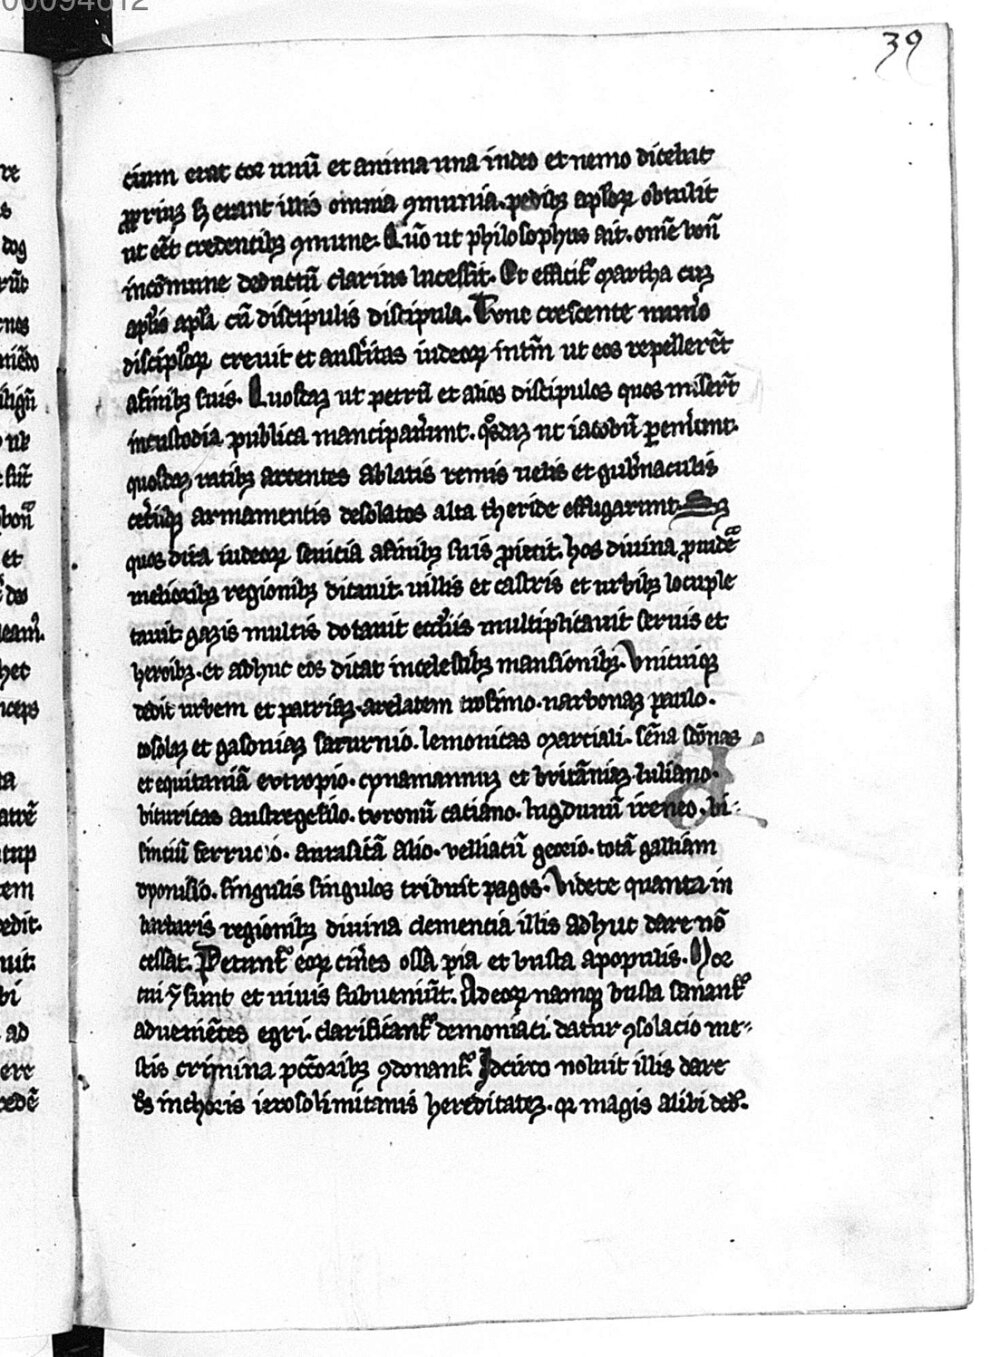 39
cium erat cor unū et anima una indeo et nemo dicebat
ꝓprius sꝫ erant illis omnia ꝯmunia. pedibꝫ aplorꝝ obtulit
ut eēt credentibꝫ ꝯmune. Quo ut philosophus ait. omē bonū
incōmune deductū clarius lucessit. Et efficit᷑ martha cuꝫ
aplis apla cū discipulis discipula. Tunc crescente num̄o
disciploꝝ creuit et austitas iudeoꝝ intm̄ ut eos repellerēt
afinibꝫ suis. Quosdaꝫ ut petrū et alios discipulos quos miser̄t
incustodia publica mancipauer̄unt. qͦsdaꝫ ut iacobū
quosdaꝫ ratibꝫ artentes ablatis remis uelis et gub̄naculis
cet̄isqꝫ armamentis desolatos alta theride effugarunt. Sꝫ
quos dira iudeoꝝ seuicia afinibꝫ suis ꝓiecit. hos diuina ꝓuidē
melioribꝫ regionibꝫ ditauit. uillis et castris et urbibꝫ locuple
tauit. gazis multis dotauit eccl̄iis multiplicauit seruis et
heroibꝫ. et adhuc eos ditat incelestibꝫ mansionibꝫ. Vnicuiqꝫ
dedit urbem et patriaꝫ. arelatem trofimo. narbonaꝫ paulo.
tosolaꝫ et gasconiaꝫ saturnio. lemonicas marciali.
et equitaniā eutropio. cynamannuꝫ et britāniaꝫ Iuliano.
bituricas austregesilo. turonū catiano. lugdunū ireneo. bi-
sintiū ferrucio. aurasicā alio. velliacū gexio. totā galliam
dyonisio. singulis singulos tribuit pagos. Videte quanta in
barbaris regionibꝫ diuina clementia illis adhuc dare nō
cessat. Petunt᷑ eoꝝ cin̄es ossa pia et busta apopulis. Mor
tui sunt et uiuis subueniūt. Ad eoꝝ namqꝫ busta sanant᷑
adueniētes egri. clarificant᷑ demoniaci datur ꝯsolacio me-
stis crimina pccōribꝫ ꝯdonant᷑. Idcirco noluit illis dare
ds̄ inchoris ierosolimitanis hereditateꝫ. qꝛ magis alibi ded̄.